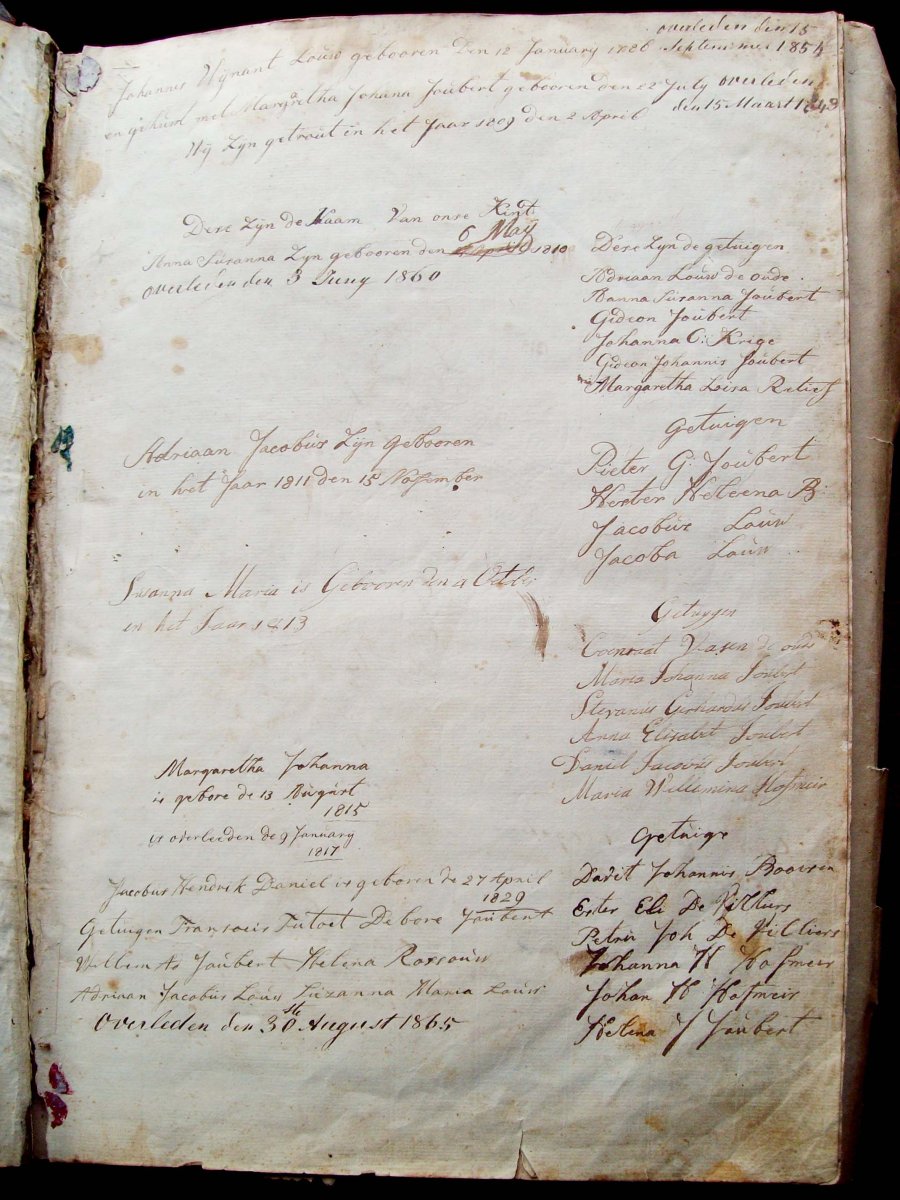 overleden din 15
Johannis Wynant Louw gebooren Den 12 January 1786 September 1854
en gehuwt met Margretha Johana Joubert gebooren den 22 July overleden
den 15 Maart 1843
Wij Zijn getrout in het Jaar 1809 den 2 April
Dese Zijn de Naam Van onse Kint
6 May
Anna Susanna Zyn gebooren den 1810
overleden den 3 Juny 1860
Dese Zijn de getuigen
Adriaan Louw de oude
Hanna Susanna Joubert
Gideon Joubert
Johanna C: Krige
Gideon Johannis Joubert
Margaretha Loisa Retief
Adriaan Jacobus Zijn gebooren
in het Jaar 1811 den 15 November
Getuigen
Pieter G. Joubert
Hester Heleena B:
Jacobus Louw
Jacoba Louw
Susanna Maria is Gebooren den 4 October
in het Jaar 1813
Getuygen
Coenraet de oude
Maria Johanna Joubert
Stevanus Gerhardus Joubert
Anna Elisabet Joubert
Daniel Jacobus Joubert
Maria Willemina Hofmeir
Margaretha Johanna
is gebore de 13 Augúst
1815
is overleeden de 9 January
1817
Getuige
Davit Johannis
Ester Eli De Villiers
Petrus Joh De Villiers
Johanna H Hofmeir
Johan H Hofmeir
Helena J Joubert
Jacobus Hendrik Daniel is geboren de 27 April
1829
Getuigen Fransois Debora Joubert
Willem As Joubert Helena Rossouw
Adriaan Jacobus Louw Suzanna Maria Louw
Overleden den 30ste August 1865